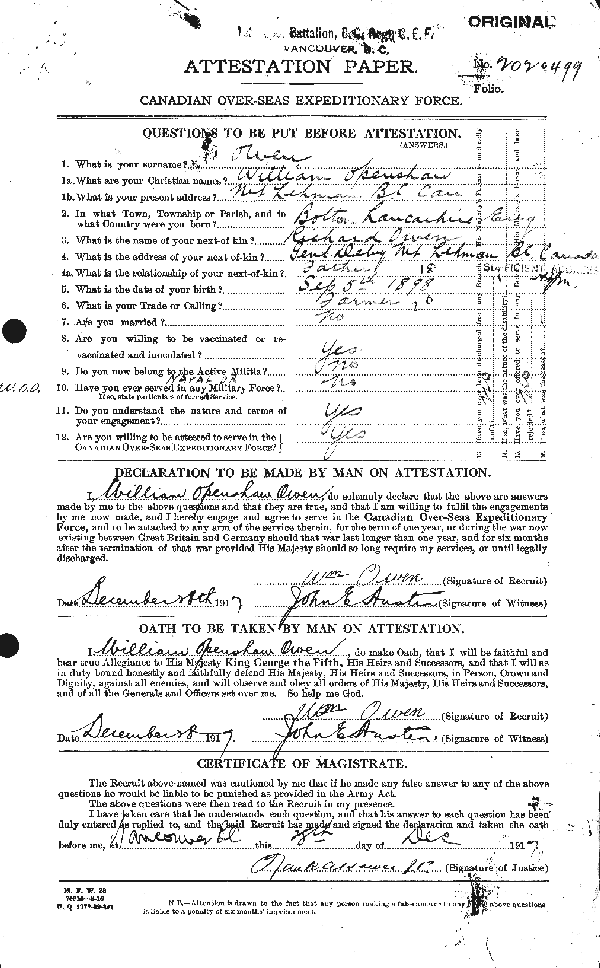 Battalion, B.C. Regt C.E.F.
ORIGINAL
VANCOUVER, B.C.
ATTESTATION PAPER.
No.
Folio.
CANADIAN OVER-SEAS EXPEDITIONARY FORCE.
QUESTIONS TO BE PUT BEFORE ATTESTATION.
(ANSWERS)
1. What is your surname? Owen
1a. What are your Christian names? William Openshaw
1b. What is your present address? Mt Lehman
2. In what Town, Township or Parish, and in
what Country were you born? Bolton Lancashire Eng
3. What is the name of your next-of-kin? Richard Owen
4. What is the address of your next-of-kin? Mt Lehman Canada
4a. What is the relationship of your next-of-kin? Father
5. What is the date of your birth? Sep 5th 1898
6. What is your Trade or Calling? Farmer
7. Are you married? No
8. Are you willing to be vaccinated or re-
vaccinated and inoculated? Yes
9. Do you now belong to the Active Militia? No
NAVAL OR
10. Have you ever served in any Military Force? No
If so, state particulars of former Service.
11. Do you understand the nature and terms of
your engagement? Yes
12. Are you willing to be attested to serve in the
CANADIAN OVER-SEAS EXPEDITIONARY FORCE? Yes
DECLARATION TO BE MADE BY MAN ON ATTESTATION.
I, William Openshaw Owen, do solemnly declare that the above are answers
made by me to the above questions and that they are true, and that I am willing to fulfil the engagements
by me now made, and I hereby engage and agree to serve in the Canadian Over-Seas Expeditionary
Force, and to be attached to any arm of the service therein, for the term of one year, or during the war now
existing between Great Britain and Germany should that war last longer than one year, and for six months
after the termination of that war provided His Majesty should so long require my services, or until legally
discharged.
Wm Owen (Signature of Recruit)
Date December 1917 John E Austen (Signature of Witness)
OATH TO BE TAKEN BY MAN ON ATTESTATION.
I, William Openshaw Owen, do make Oath, that I will be faithful and
bear true Allegiance to His Majesty King George the Fifth, His Heirs and Successors, and that I will as
in duty bound honestly and faithfully defend His Majesty, His Heirs and Successors, in Person, Crown and
Dignity, against all enemies, and will observe and obey all orders of His Majesty, His Heirs and Successors,
and of all the Generals and Officers set over me. So help me God.
Wm Owen (Signature of Recruit)
Date December 1917. John E Austen (Signature of Witness)
CERTIFICATE OF MAGISTRATE.
The Recruit above-named was cautioned by me that if he made any false answer to any of the above
questions he would be liable to be punished as provided in the Army Act.
The above questions were then read to the Recruit in my presence.
I have taken care that he understands each question, and that his answer to each question has been
duly entered as replied to, and the said Recruit has made and signed the declaration and taken the oath
before me, at Vancouver this day of Dec 1917
(Signature of Justice)
M. F. W. 23
N.B.—Attention is drawn to the fact that any person making a false answer to any of the above questions
is liable to a penalty of six months' imprisonment.